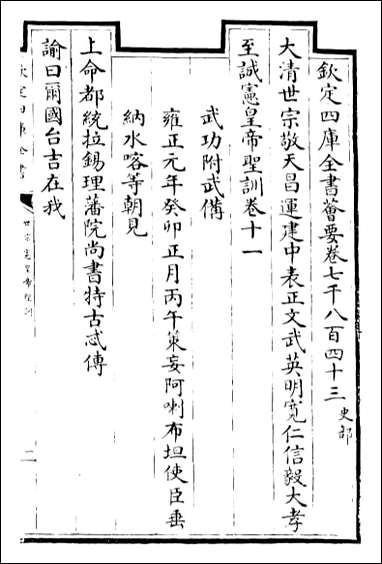 欽定四庫全書薈要卷七千八百四十三 史部
大清世宗敬天昌運建中表正文武英明寬仁信毅大孝
至誠憲皇帝聖訓卷十一
武功附武備
雍正元年癸卯正月丙午策妄阿喇布坦使臣垂
納水喀等朝見
上命都統拉錫理藩院尚書特古忒傳
諭曰爾國台吉在我
欽定四庫全書
世宗憲皇帝聖訓
一